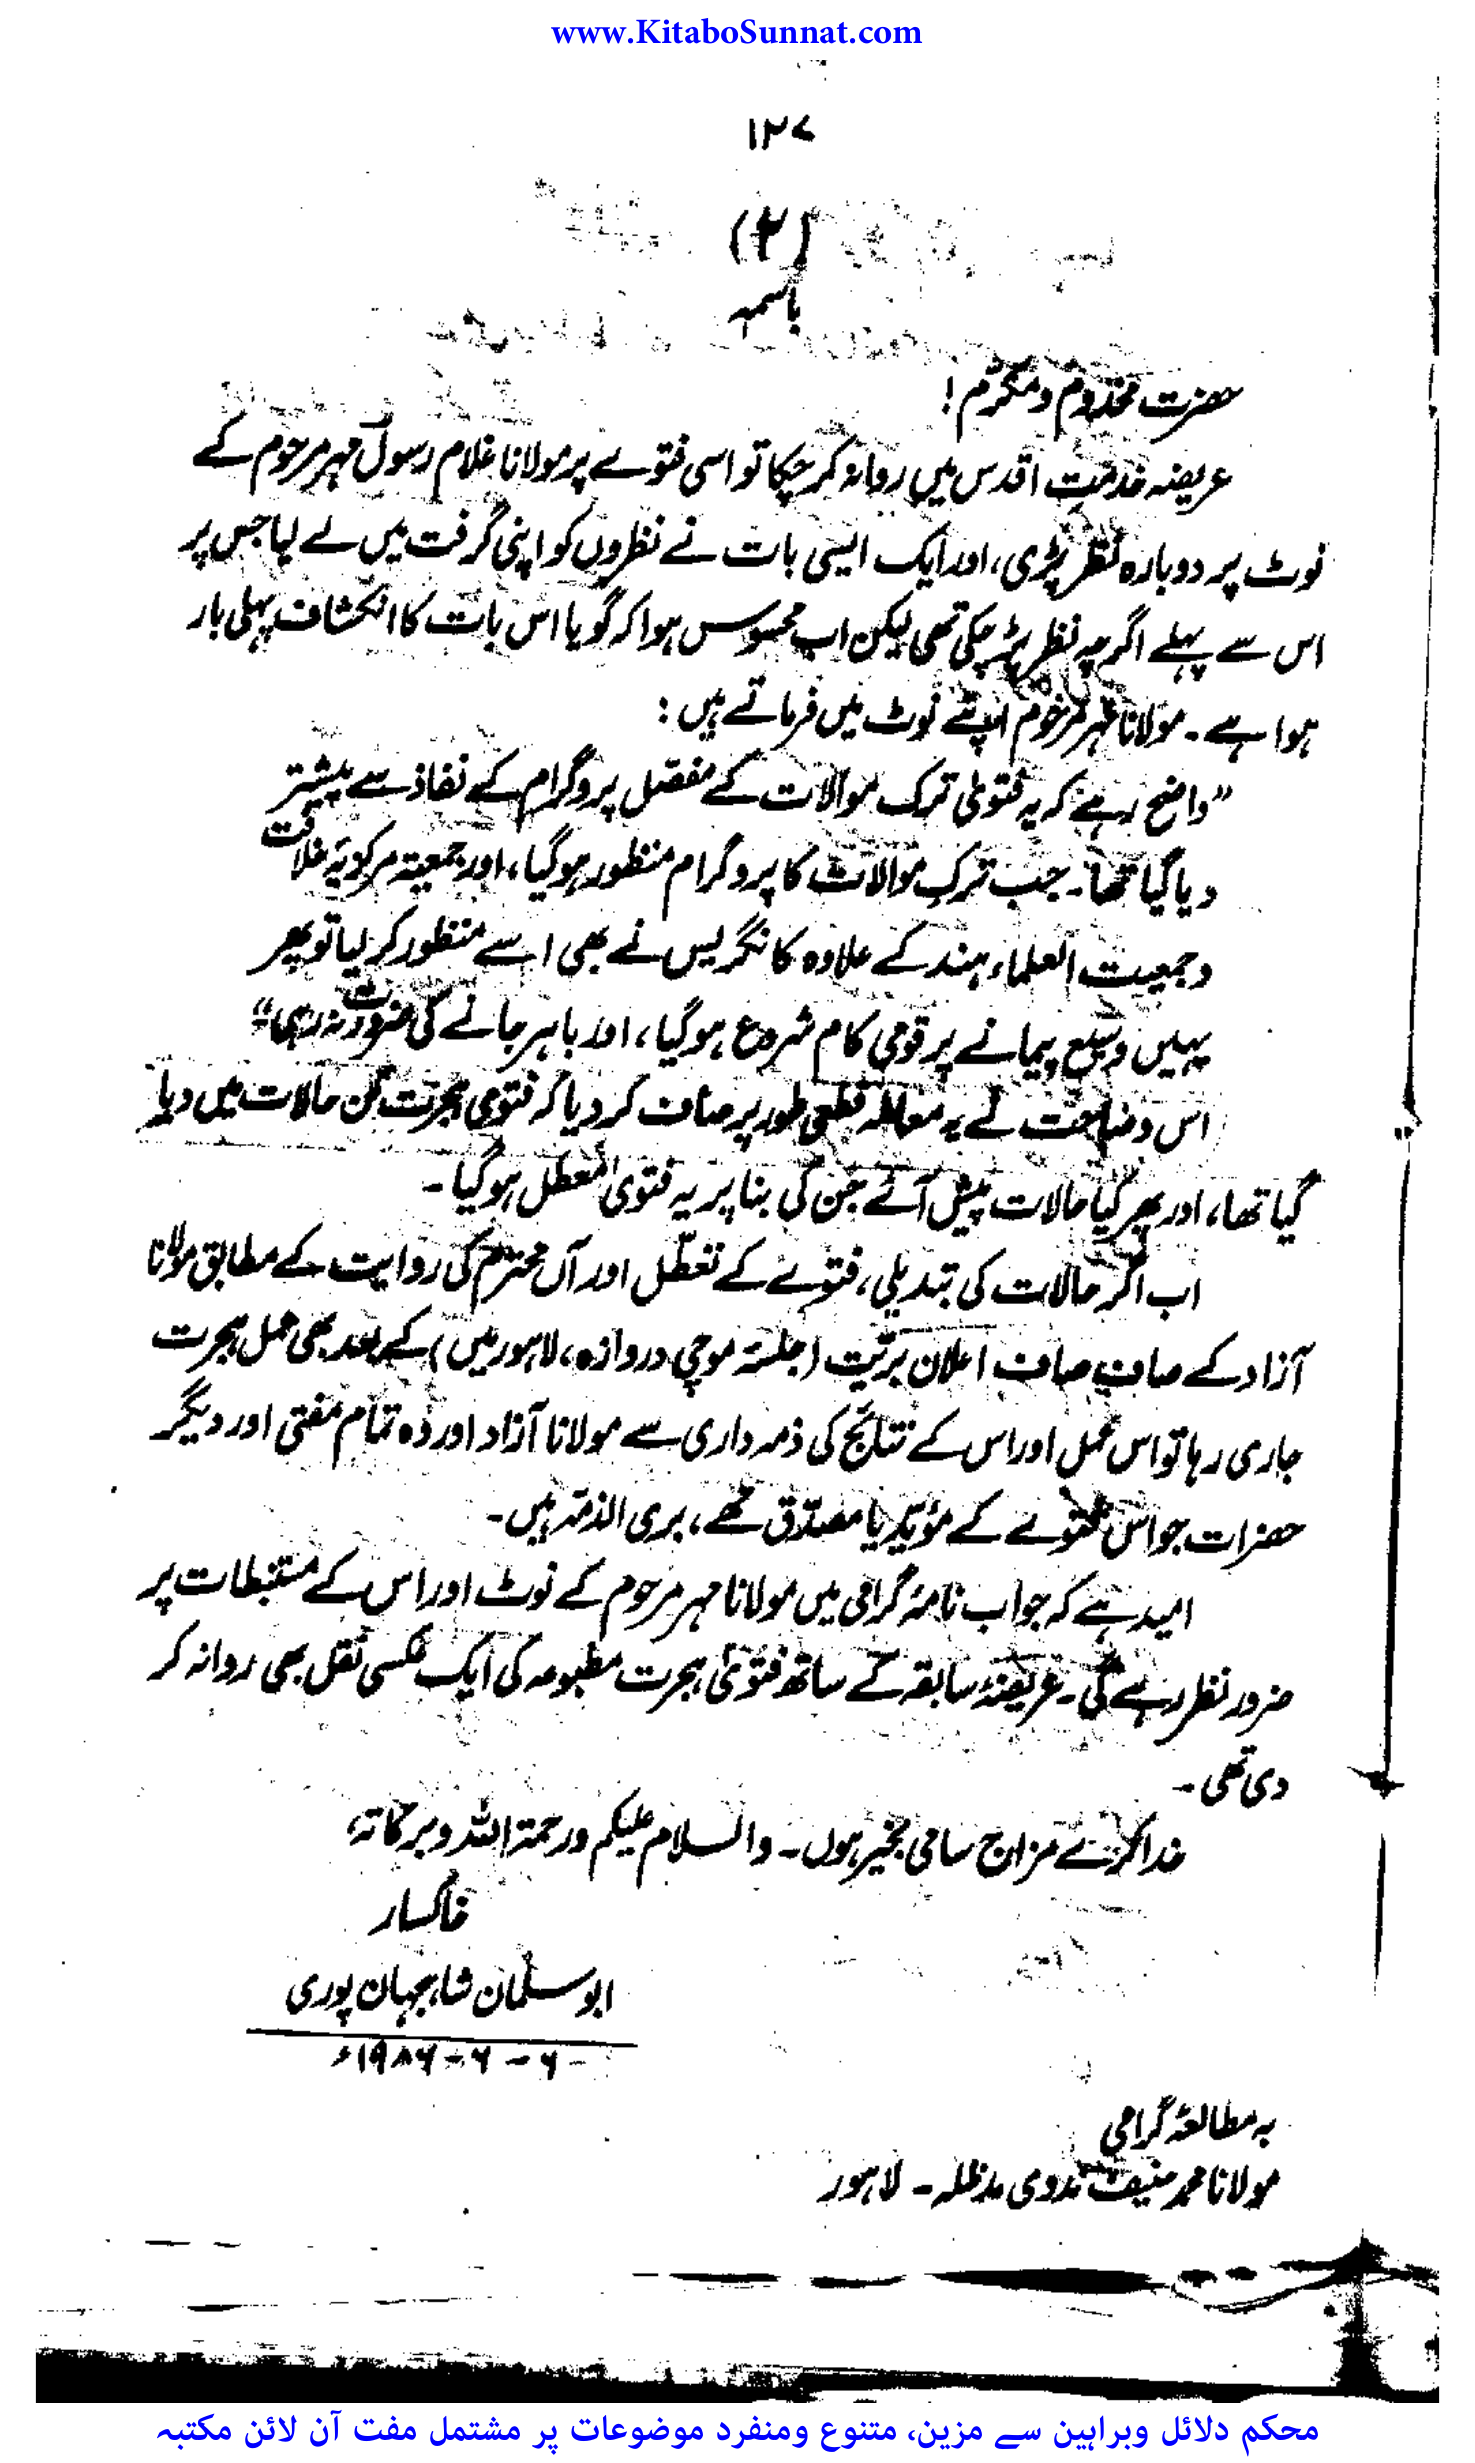 www.KitaboSunnat.com
۱۲۷
(۲)
باسمہ
حضرت مخدوم و مکرم!
عریضہ خدمتِ اقدس میں روانہ کر چکا تو اسی فتوے پر مولانا غلام رسول مہر مرحوم کے
نوٹ پر دوبارہ نظر پڑی، اور ایک ایسی بات نے نظروں کو اپنی گرفت میں لے لیا جس پر
اس سے پہلے اگرچہ نظر پڑ چکی تھی لیکن اب محسوس ہوا کہ گویا اس بات کا انکشاف پہلی بار
ہوا ہے۔ مولانا مہر مرحوم اپنے نوٹ میں فرماتے ہیں:
”واضح رہے کہ یہ فتویٰ ترک موالات کے مفصّل پروگرام کے نفاذ سے پیشتر
دیا گیا تھا۔ جب ترکِ موالات کا پروگرام منظور ہو گیا، اور جمعیۃ مرکزیۂ خلافت
و جمعیت العلماء ہند کے علاوہ کانگریس نے بھی اسے منظور کر لیا تو پھر
یہیں وسیع پیمانے پر قومی کام شروع ہو گیا، اور باہر جانے کی ضرورت نہ رہی“
اس وضاحت نے یہ معاملہ قطعی طور پر صاف کر دیا کہ فتویٰ ہجرت کن حالات میں دیا
گیا تھا، اور پھر کیا حالات پیش آئے جن کی بنا پر یہ فتویٰ معطل ہو گیا۔
اب اگر حالات کی تبدیلی، فتوے کے تعطّل اور آں محترم کی روایت کے مطابق مولانا
آزاد کے صاف صاف اعلان بریّت (جلسۂ موچی دروازہ، لاہور میں) کے بعد بھی عمل ہجرت
جاری رہا تو اس عمل اور اس کے نتائج کی ذمہ داری سے مولانا آزاد اور وہ تمام مفتی اور دیگر
حضرات جو اس فتوے کے مؤیّد یا مصدّق تھے، بری الذمّہ ہیں۔
امید ہے کہ جواب نامۂ گرامی میں مولانا مہر مرحوم کے نوٹ اور اس کے مستنبطات پر
ضرور نظر رہے گی۔ عریضۂ سابقہ کے ساتھ فتویٰ ہجرت مطبوعہ کی ایک عکسی نقل بھی روانہ کر
دی تھی۔
خدا کرے مزاج سامی بخیر ہوں۔ والسلام علیکم ورحمۃ اللہ وبرکاتہ،
خاکسار
ابو سلمان شاہجہان پوری
۶ - ۶ - ۱۹۸۶ء
بہ مطالعۂ گرامی
مولانا محمد حنیف ندوی مدظلہ۔ لاہور
محکم دلائل وبراہین سے مزین، متنوع ومنفرد موضوعات پر مشتمل مفت آن لائن مکتبہ